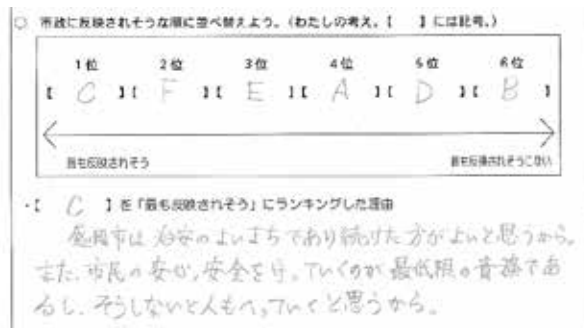 市政に反映されそうな順に並べ替えよう。(わたしの考え。【 】には記号。)
1位 2位 3位 4位 5位 6位
【 C 】【 F 】【 E 】【 A 】【 D 】【 B 】
最も反映されそう 最も反映されそうにない
・【 C 】を「最も反映されそう」にランキングした理由
市は治安のよいまちであり続けた方がよいと思うから。
また、市民の安心、安全を守っていくのが最低限の責務であ
るし、そうしないと人もへっていくと思うから。